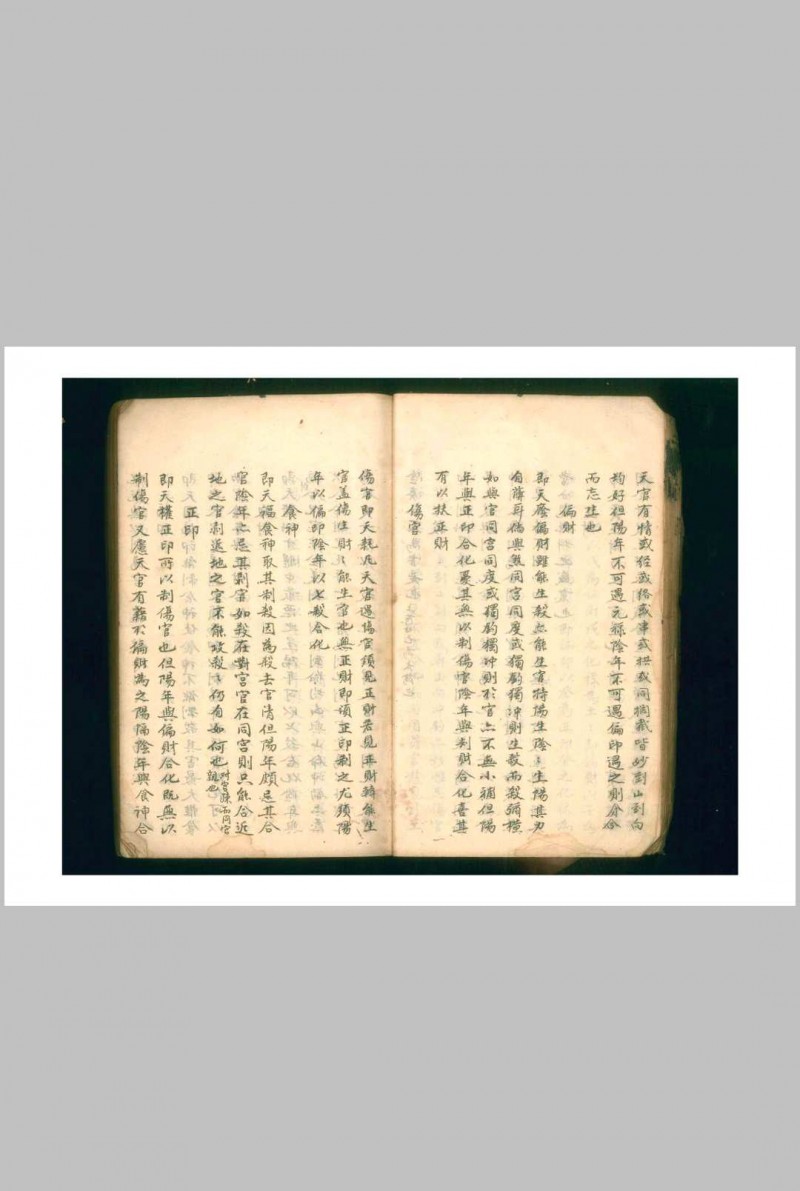 天官有情或经或络或串或拱或同躔戴皆妙到山到向
均好但陽年不可遇元祿陰年不可遇偏印遇之則貪合
而忘法也
偏財
即天廕偏財雖能生殺亦能生官特陽生陰陰生陽其力
自薄耳倘與煞同宮同度或獨釣獨冲則生殺而殺彌橫
如與官同宮同度或獨釣獨冲則於官亦不無小補但陽
年與正印合化憂其無以制傷官陰年與刦財合化喜其
有以扶正財
傷官
傷官即天耗凡天官遇傷官須見正財若見正財轉能生
官盖傷生財財能生官也無正財即須正印制之尤須陽
年以偏印陰年以七殺合化
食神
即天福食神取其制殺因為殺去官清但陽年頗忌其合
官陰年亦忌其剝官如殺在對宮官在同宮則只能合近
地之官剝近地之官不能攻殺殺仍有如何也對宮疎而同宮親也
正印
即天權正印所以制傷官也但陽年與偏財合化既無以
制傷官又慮天官有藉於偏財為之陽隔陰年與食神合